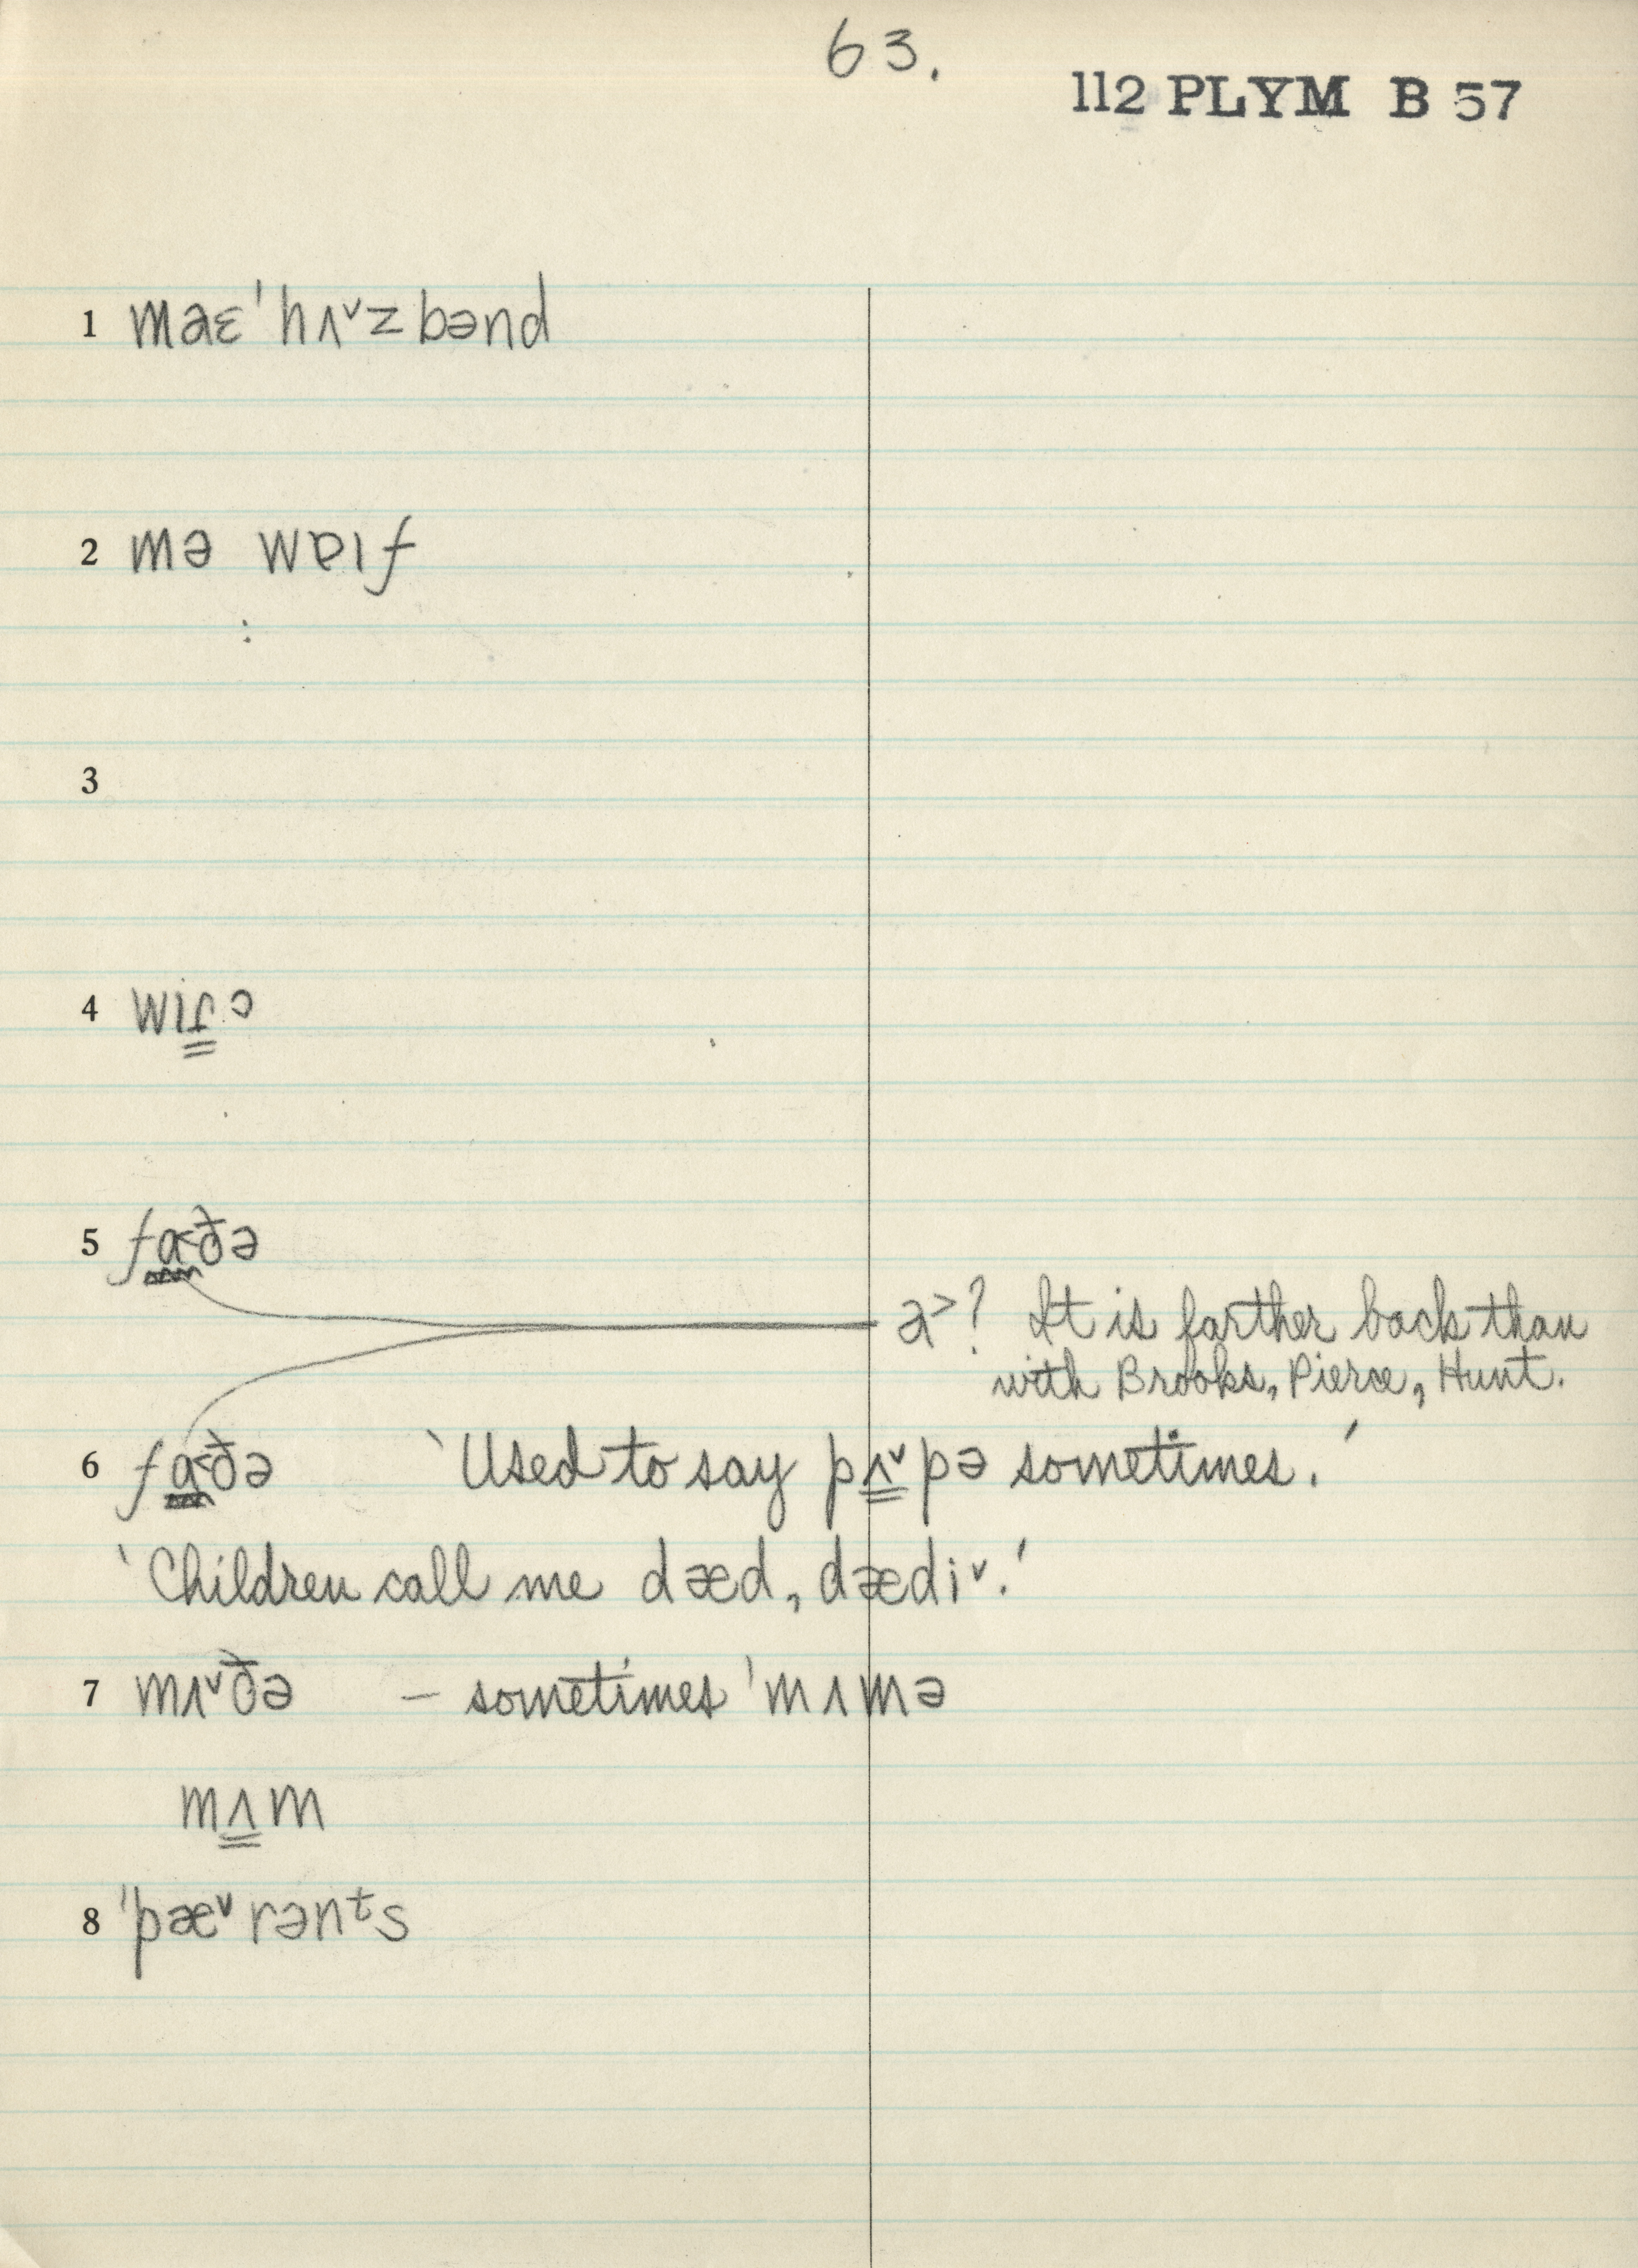 63.
112 PLYM B 57
1 maɛˈhʌ˅zbənd
2 mə wɒɪf
3
4 wɪɾɔ
5 fɑ˂ðə
a˃? It is farther back than
with Brooks, Pierce, Hunt.
6 fɑ˂ðə 'Used to say pʌ˅pə sometimes.'
'Children call me dæd, dædi˅.'
7 mʌ˅ðə – sometimes ˈmʌmə
mʌm
8 ˈpæ˅rənᵗs